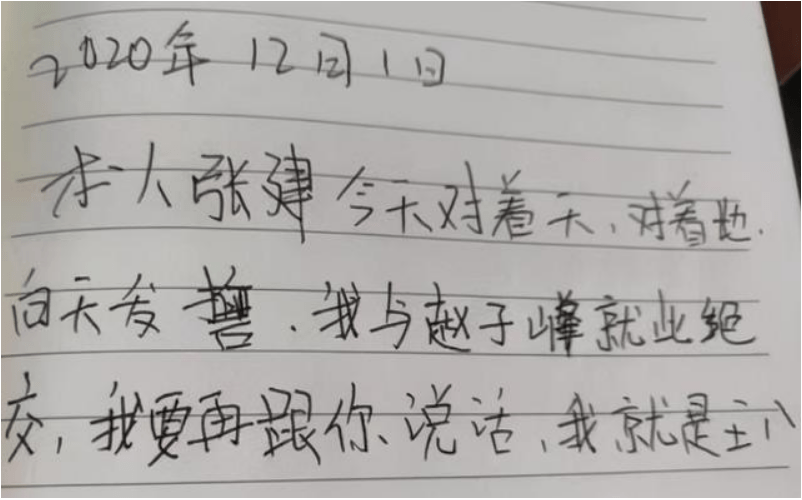 2020年12月1日
本人张建今天对着天,对着地.
向天发誓.我与赵子峰就此绝
交,我要再跟你说话,我就是王八